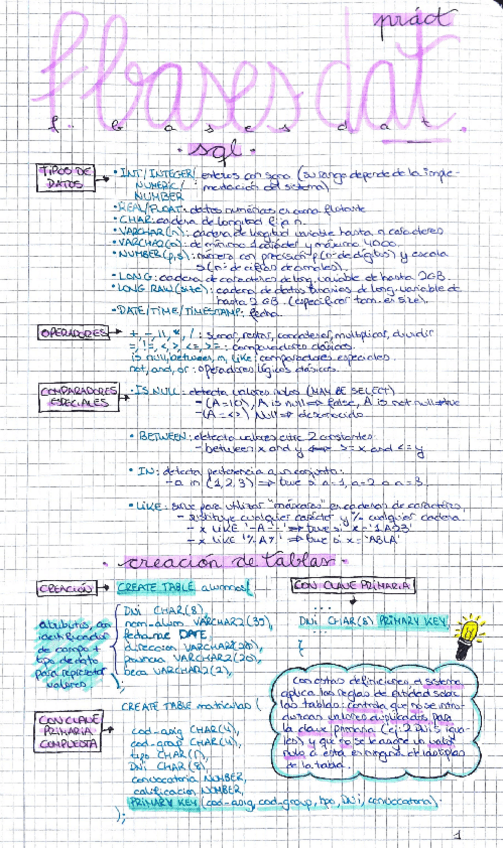 práct
f.basesdat
f. b a s e s d a t.
· sql ·
TIPOS DE DATOS
· INT/INTEGER/ enteros con signo (su rango depende de la imple-
NUMERIC / mentación del sistema)
NUMBER
· REAL/FLOAT: datos numéricos en coma flotante
· CHAR: cadena de longitud fija n.
· VARCHAR(n): cadena de longitud variable hasta n caracteres
· VARCHAR(n): de mínimo 1 carácter y máximo 4000.
· NUMBER(p,s): número con precisión p(nº de dígitos) y escala
s(nº de cifras decimales).
· LONG: cadena de caracteres de long. variable de hasta 2GB.
· LONG RAW(size): cadena de datos binarios de long. variable de
hasta 2GB. (especificar tam. en size).
· DATE/TIME/TIMESTAMP: fecha.
OPERADORES
+, -, ||, *, / : sumar, restar, concatenar, multiplicar, dividir
=, !=, <, >, <=, >= : comparadores clásicos.
is null, between, in, like: comparadores especiales.
not, and, or: operadores lógicos clásicos.
COMPARADORES ESPECIALES
· IS NULL: detecta valores nulos (MAY BE SELECT)
A is null => false, A is not null => true
Null => desconocido
· BETWEEN: detecta valores entre 2 constantes
- between x and y <=> >= x and <= y
· IN: detecta pertenencia a un conjunto.
- a in (1,2,3) => true si a=1, a=2 o a=3.
· LIKE: sirve para utilizar "máscaras" en cadenas de caracteres,
- sustituye cualquier carácter y % cualquier cadena
- x LIKE => true si x =
- x LIKE '%A7' => true si x =
· creación de tablas ·
CREACIÓN
CREATE TABLE alumnos(
Dni CHAR(8),
nom_alum VARCHAR2(35),
fecha_nac DATE,
direccion VARCHAR2(20),
provincia VARCHAR2(20),
beca VARCHAR2(2),
);
atributos, con
identificador
de campo +
tipo de dato
para representar
valores
CON CLAVE PRIMARIA
...
Dni CHAR(8) PRIMARY KEY
...
{
con estas definiciones el sistema
aplica las reglas de entidad sobre
las tablas: controla que no se intro-
duzcan valores duplicados para
la clave primaria (ej: 2 Dnis igua-
les) y que no se almacene un valor
nulo a esta en ninguna de las tuplas
de la tabla.
CON CLAVE
PRIMARIA
COMPUESTA
CREATE TABLE matriculas (
cod-asig CHAR(4),
cod-group CHAR(4),
tipo CHAR(1),
Dni CHAR(8),
convocatoria NUMBER,
calificación NUMBER,
PRIMARY KEY (cod-asig, cod-group, tipo, Dni, convocatoria)
);
1